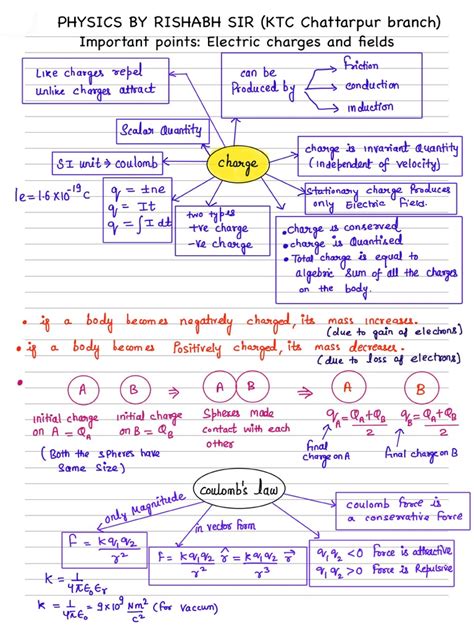 PHYSICS BY RISHABH SIR (KTC Chattarpur branch)
Important points: Electric charges and fields
Like charges repel
unlike charges attract
can be
Produced by
friction
conduction
induction
Scalar Quantity
SI unit → coulomb
charge
charge is invariant Quantity
(independent of velocity)
1e = 1.6 X10⁻¹⁹ C
q = ±ne
q = It
q = ∫I dt
two types
+ve charge
-ve charge
Stationary charge Produces
only Electric field.
• charge is conserved
• charge is Quantised
• Total charge is equal to
algebric sum of all the charges
on the body.
• if a body becomes negatively charged, its mass increases.
(due to gain of electrons)
• if a body becomes Positively charged, its mass decreases.
(due to loss of electrons)
• A B ⇒ A B ⇒ A B
Initial charge
on A = Q_A
initial charge
on B = Q_B
Spheres made
contact with each
other
q_A = Q_A+Q_B / 2
final
charge on A
q_B = Q_A+Q_B / 2
final charge on B
(Both the spheres have
same size)
coulomb's law
only Magnitude
in vector form
coulomb force is
a conservative force
F = kq₁q₂ / r²
F = kq₁q₂ / r² r̂ = kq₁q₂ / r³ r⃗
q₁q₂ < 0 Force is attractive
q₁q₂ > 0 Force is Repulsive
K = 1 / 4πε₀εᵣ
K = 1 / 4πε₀ = 9×10⁹ Nm² / c² (for vaccum)